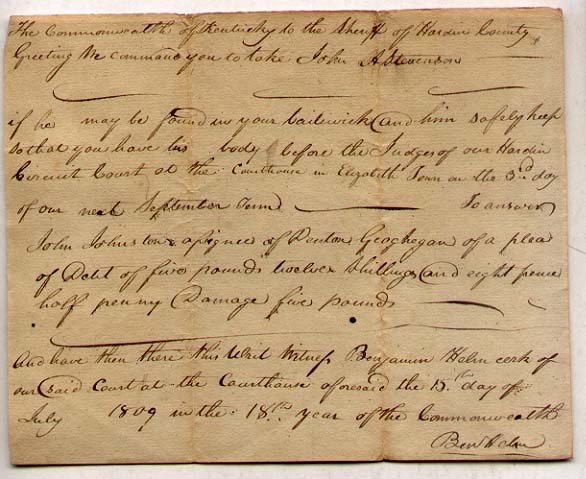 The Commonwealth of Kentucky to the Sheriff of Hardin County
Greeting We command you to take John A Stevenson
if he may be found in your bailiwick and him safely keep
so that you have his body before the Judges of our Hardin
Circuit Court at the Courthouse in Elizabeth Town on the 3rd day
of our next September Term To answer
John Johnston assignee of Denton Geoghegan of a plea
of Debt of five pounds twelve Shillings and eight pence
half penny Damage five pounds
And have then there this Writ Witness Benjamin Helm cerk of
our said Court at the Courthouse aforesaid the 15th day of
July 1809 in the 18th year of the Commonwealth
Ben Helm